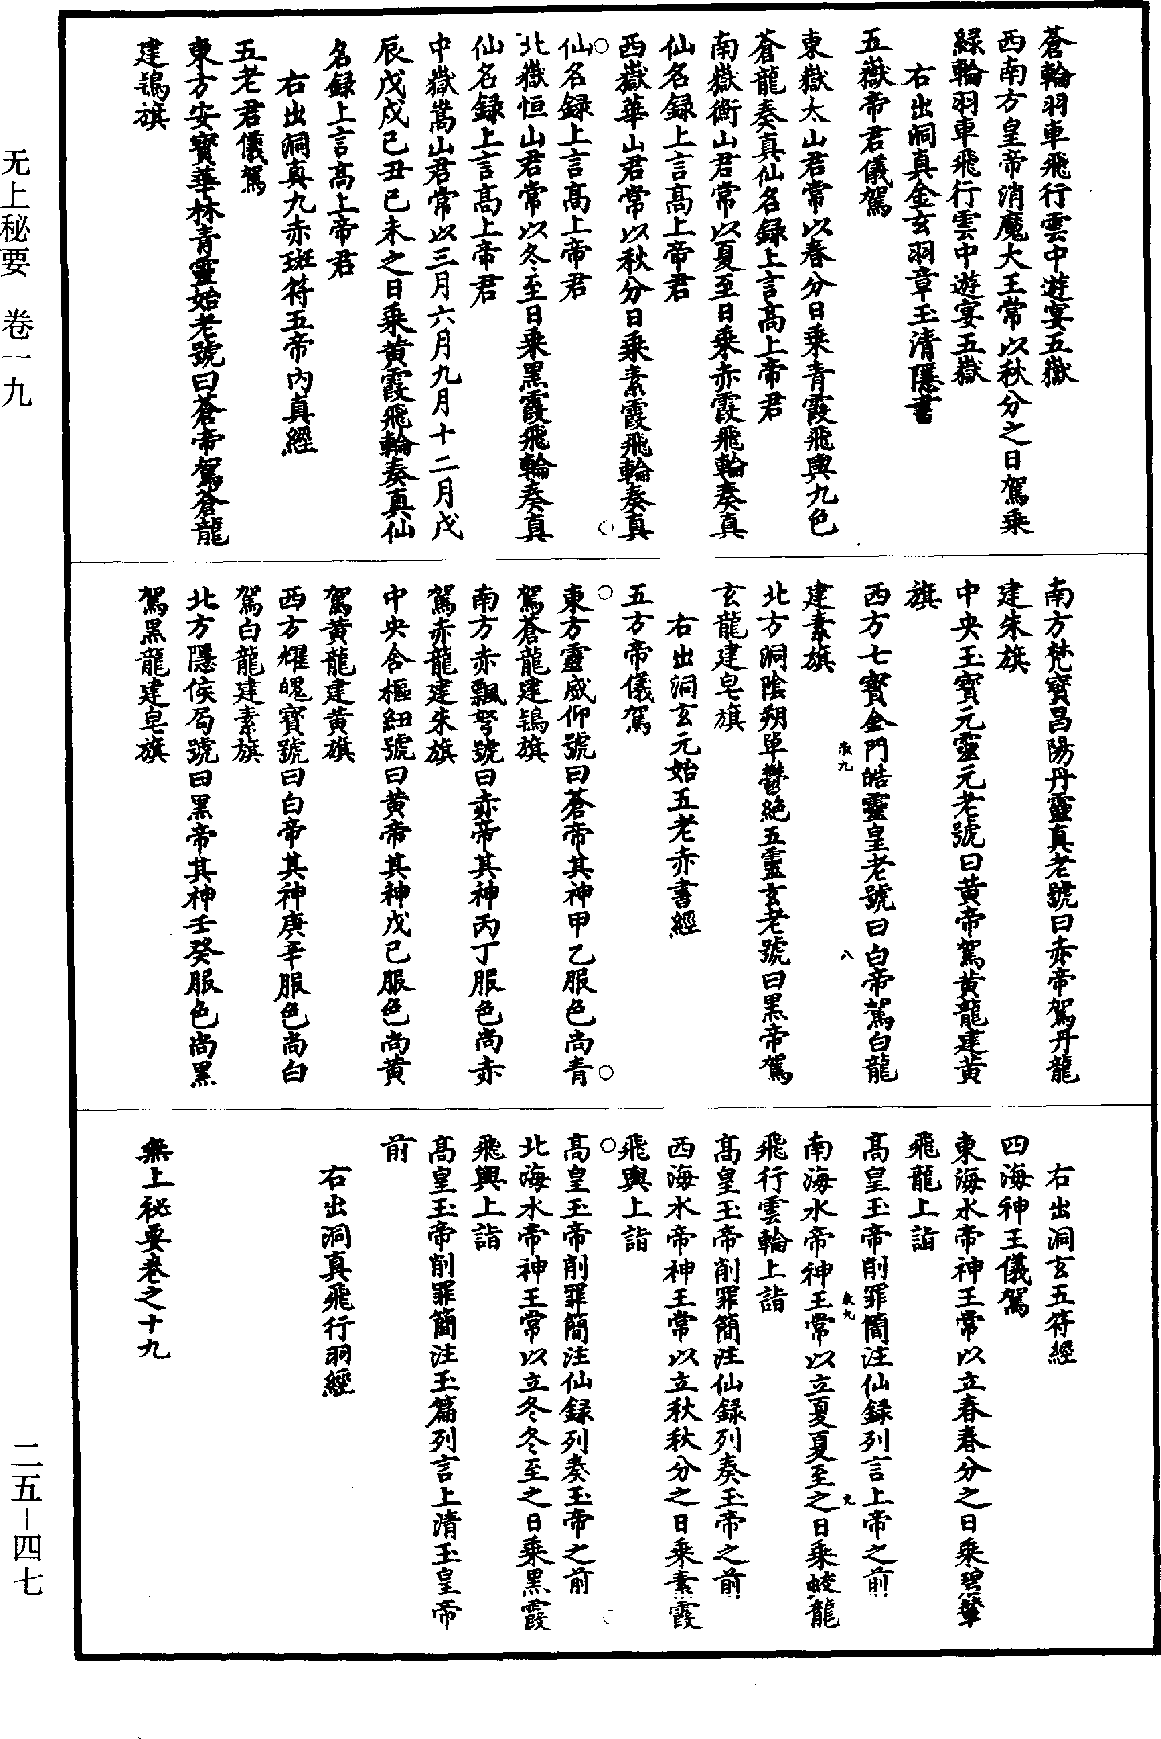 蒼輪羽車飛行雲中遊宴五嶽
西南方皇帝消魔大王常以秋分之日駕乘
綠輪羽車飛行雲中遊宴五嶽
右出洞真金玄羽章玉清隱書
五嶽帝君儀駕
東嶽太山君常以春分日乘青霞飛輿九色
蒼龍奏真仙名録上言高上帝君
南嶽衡山君常以夏至日乘赤霞飛輪奏真
仙名録上言高上帝君
西嶽華山君常以秋分日乘素霞飛輪奏真
仙名録上言高上帝君
北嶽恒山君常以冬至日乘黑霞飛輪奏真
仙名録上言高上帝君
中嶽嵩山君常以三月六月九月十二月戊
辰戊戌己丑己未之日乘黃霞飛輪奏真仙
名録上言高上帝君
右出洞真九赤斑符五帝內真經
五老君儀駕
東方安寶華林青靈始老號曰蒼帝駕蒼龍
建鶉旗
南方梵寶昌陽丹靈真老號曰赤帝駕丹龍
建朱旗
中央玉寶元靈元老號曰黃帝駕黃龍建黃
旗
西方七寶金門皓靈皇老號曰白帝駕白龍
建素旗
北方洞陰朔單鬱絕五靈玄老號曰黑帝駕
玄龍建皂旗
右出洞玄元始五老赤書經
五方帝儀駕
東方靈威仰號曰蒼帝其神甲乙服色尚青
駕蒼龍建鶉旗
南方赤飄弩號曰赤帝其神丙丁服色尚赤
駕赤龍建朱旗
中央含樞紐號曰黃帝其神戊己服色尚黃
駕黃龍建黃旗
西方耀魄寶號曰白帝其神庚辛服色尚白
駕白龍建素旗
北方隱侯局號曰黑帝其神壬癸服色尚黑
駕黑龍建皂旗
右出洞玄五符經
四海神王儀駕
東海水帝神王常以立春春分之日乘碧輦
飛龍上詣
高皇玉帝削罪簡注仙録列言上帝之前
南海水帝神王常以立夏夏至之日乘蛟龍
飛行雲輪上詣
高皇玉帝削罪簡注仙録列奏玉帝之前
西海水帝神王常以立秋秋分之日乘素霞
飛輿上詣
高皇玉帝削罪簡注仙録列奏玉帝之前
北海水帝神王常以立冬冬至之日乘黑霞
飛輿上詣
高皇玉帝削罪簡注玉篇列言上清玉皇帝
前
右出洞真飛行羽經
無上秘要卷之十九
无上秘要 卷一九
二五－四七